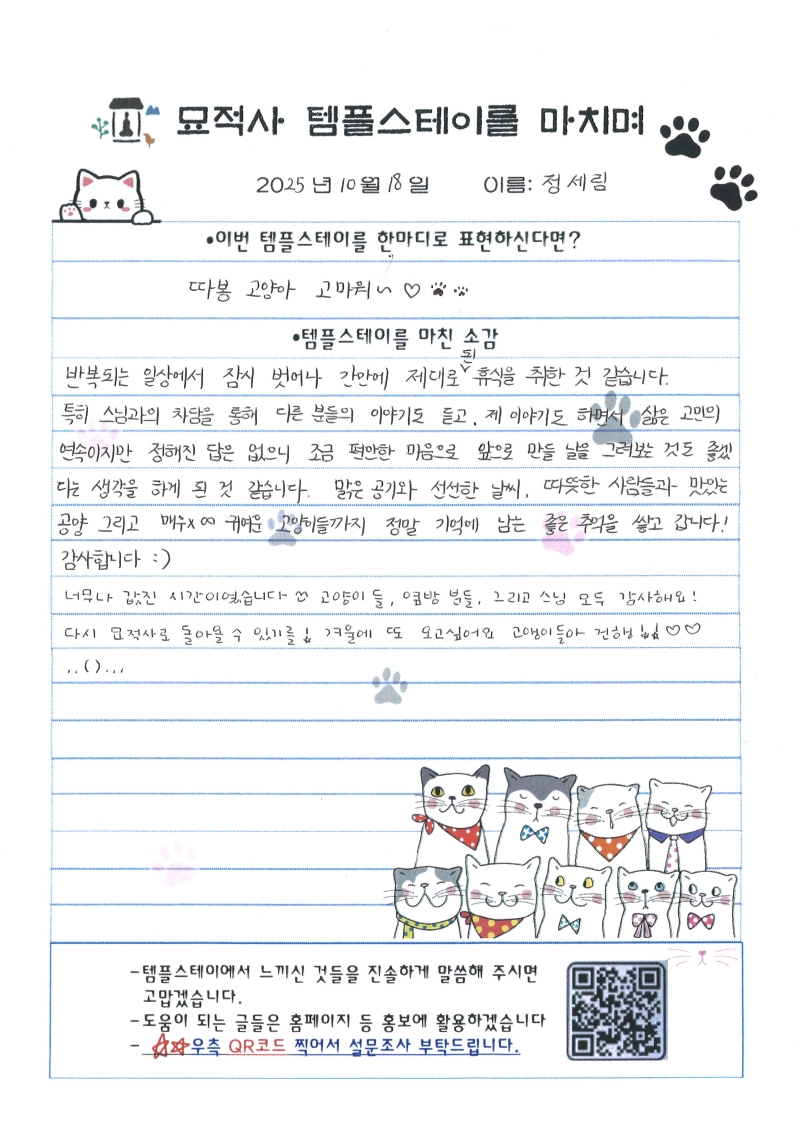 묘적사 템플스테이를 마치며
2025 년 10 월 18 일 이름: 정세림
•이번 템플스테이를 한마디로 표현하신다면?
따봉 고양아 고마워~ ♡
•템플스테이를 마친 소감
반복되는 일상에서 잠시 벗어나 간만에 제대로 된 휴식을 취한 것 같습니다.
특히 스님과의 차담을 통해 다른 분들의 이야기도 듣고, 제 이야기도 하면서 삶은 고민의
연속이지만 정해진 답은 없으니 조금 편안한 마음으로 앞으로 만들 날을 그려보는 것도 좋겠
다는 생각을 하게 된 것 같습니다. 맑은 공기와 선선한 날씨, 따뜻한 사람들과 맛있는
공양 그리고 매우x ∞ 귀여운 고양이들까지 정말 기억에 남는 좋은 추억을 쌓고 갑니다!
감사합니다 :)
너무나 값진 시간이였습니다 고양이들, 옆방 분들, 그리고 스님 모두 감사해요!
다시 묘적사로 돌아올 수 있기를! 겨울에 또 오고싶어요 고앵이들아 건행!! ♡♡
,,().,,
-템플스테이에서 느끼신 것들을 진솔하게 말씀해 주시면
고맙겠습니다.
-도움이 되는 글들은 홈페이지 등 홍보에 활용하겠습니다
- ☆☆우측 QR코드 찍어서 설문조사 부탁드립니다.